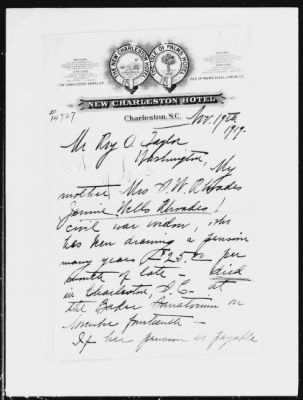 THE NEW CHARLESTON HOTEL
ISLE OF PALMS HOTEL
NEW CHARLESTON HOTEL
Charleston, S.C. Nov. 19th
1919
Mr Roy O. Taylor
Washington,
My
mother Mrs A. W. Rhodes
Jannie Wells Rhoades
civil war widow, who
has been drawing a pension
many years $25.00 per
month of late - died
in Charleston, S.C. at
the Baker Sanatorium on
November fourteenth -
If her pension is payable